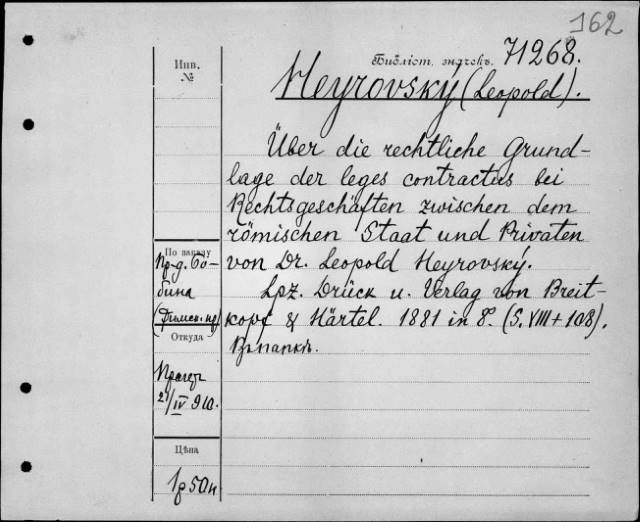 162
Библіот. значекъ. 71268.
Инв.
№
Heyrovský (Leopold).
Über die rechtliche Grund-
lage der leges contractus bei
Rechtsgeschäften zwischen dem
römischen Staat und Privaten
von Dr. Leopold Heyrovský.
Lpz. Drück u. Verlag von Breit-
kopf & Härtel. 1881 in 8º. (S. VIII + 108).
Въ папкѣ.
По заказу
бина
Откуда
IV 910.
Цѣна
1р 50к